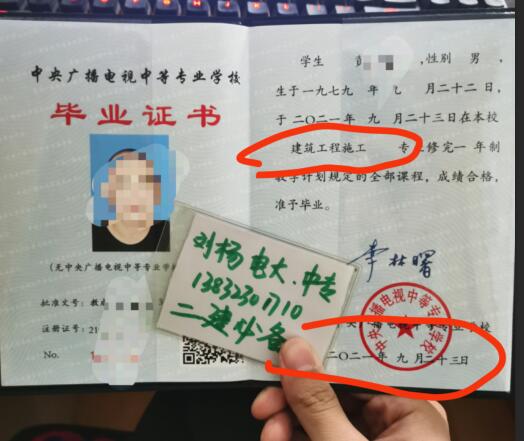 中央广播电视中等专业学校
毕业证书
(无中央广播电视中等专业学
批准文号：教
注册证号：21
No. 1
学生 ，性别 男，
生于一九七九年九月二十二日，
于二〇二一年九月二十三日在本校
建筑工程施工 专 修完一年制
教学计划规定的全部课程，成绩合格，
准予毕业。
李林曙
广播电视中等专业学校
二〇二一年九月二十三日
中央广播电视中等专业学校
刘杨电大.中专
13832301710
二建必备